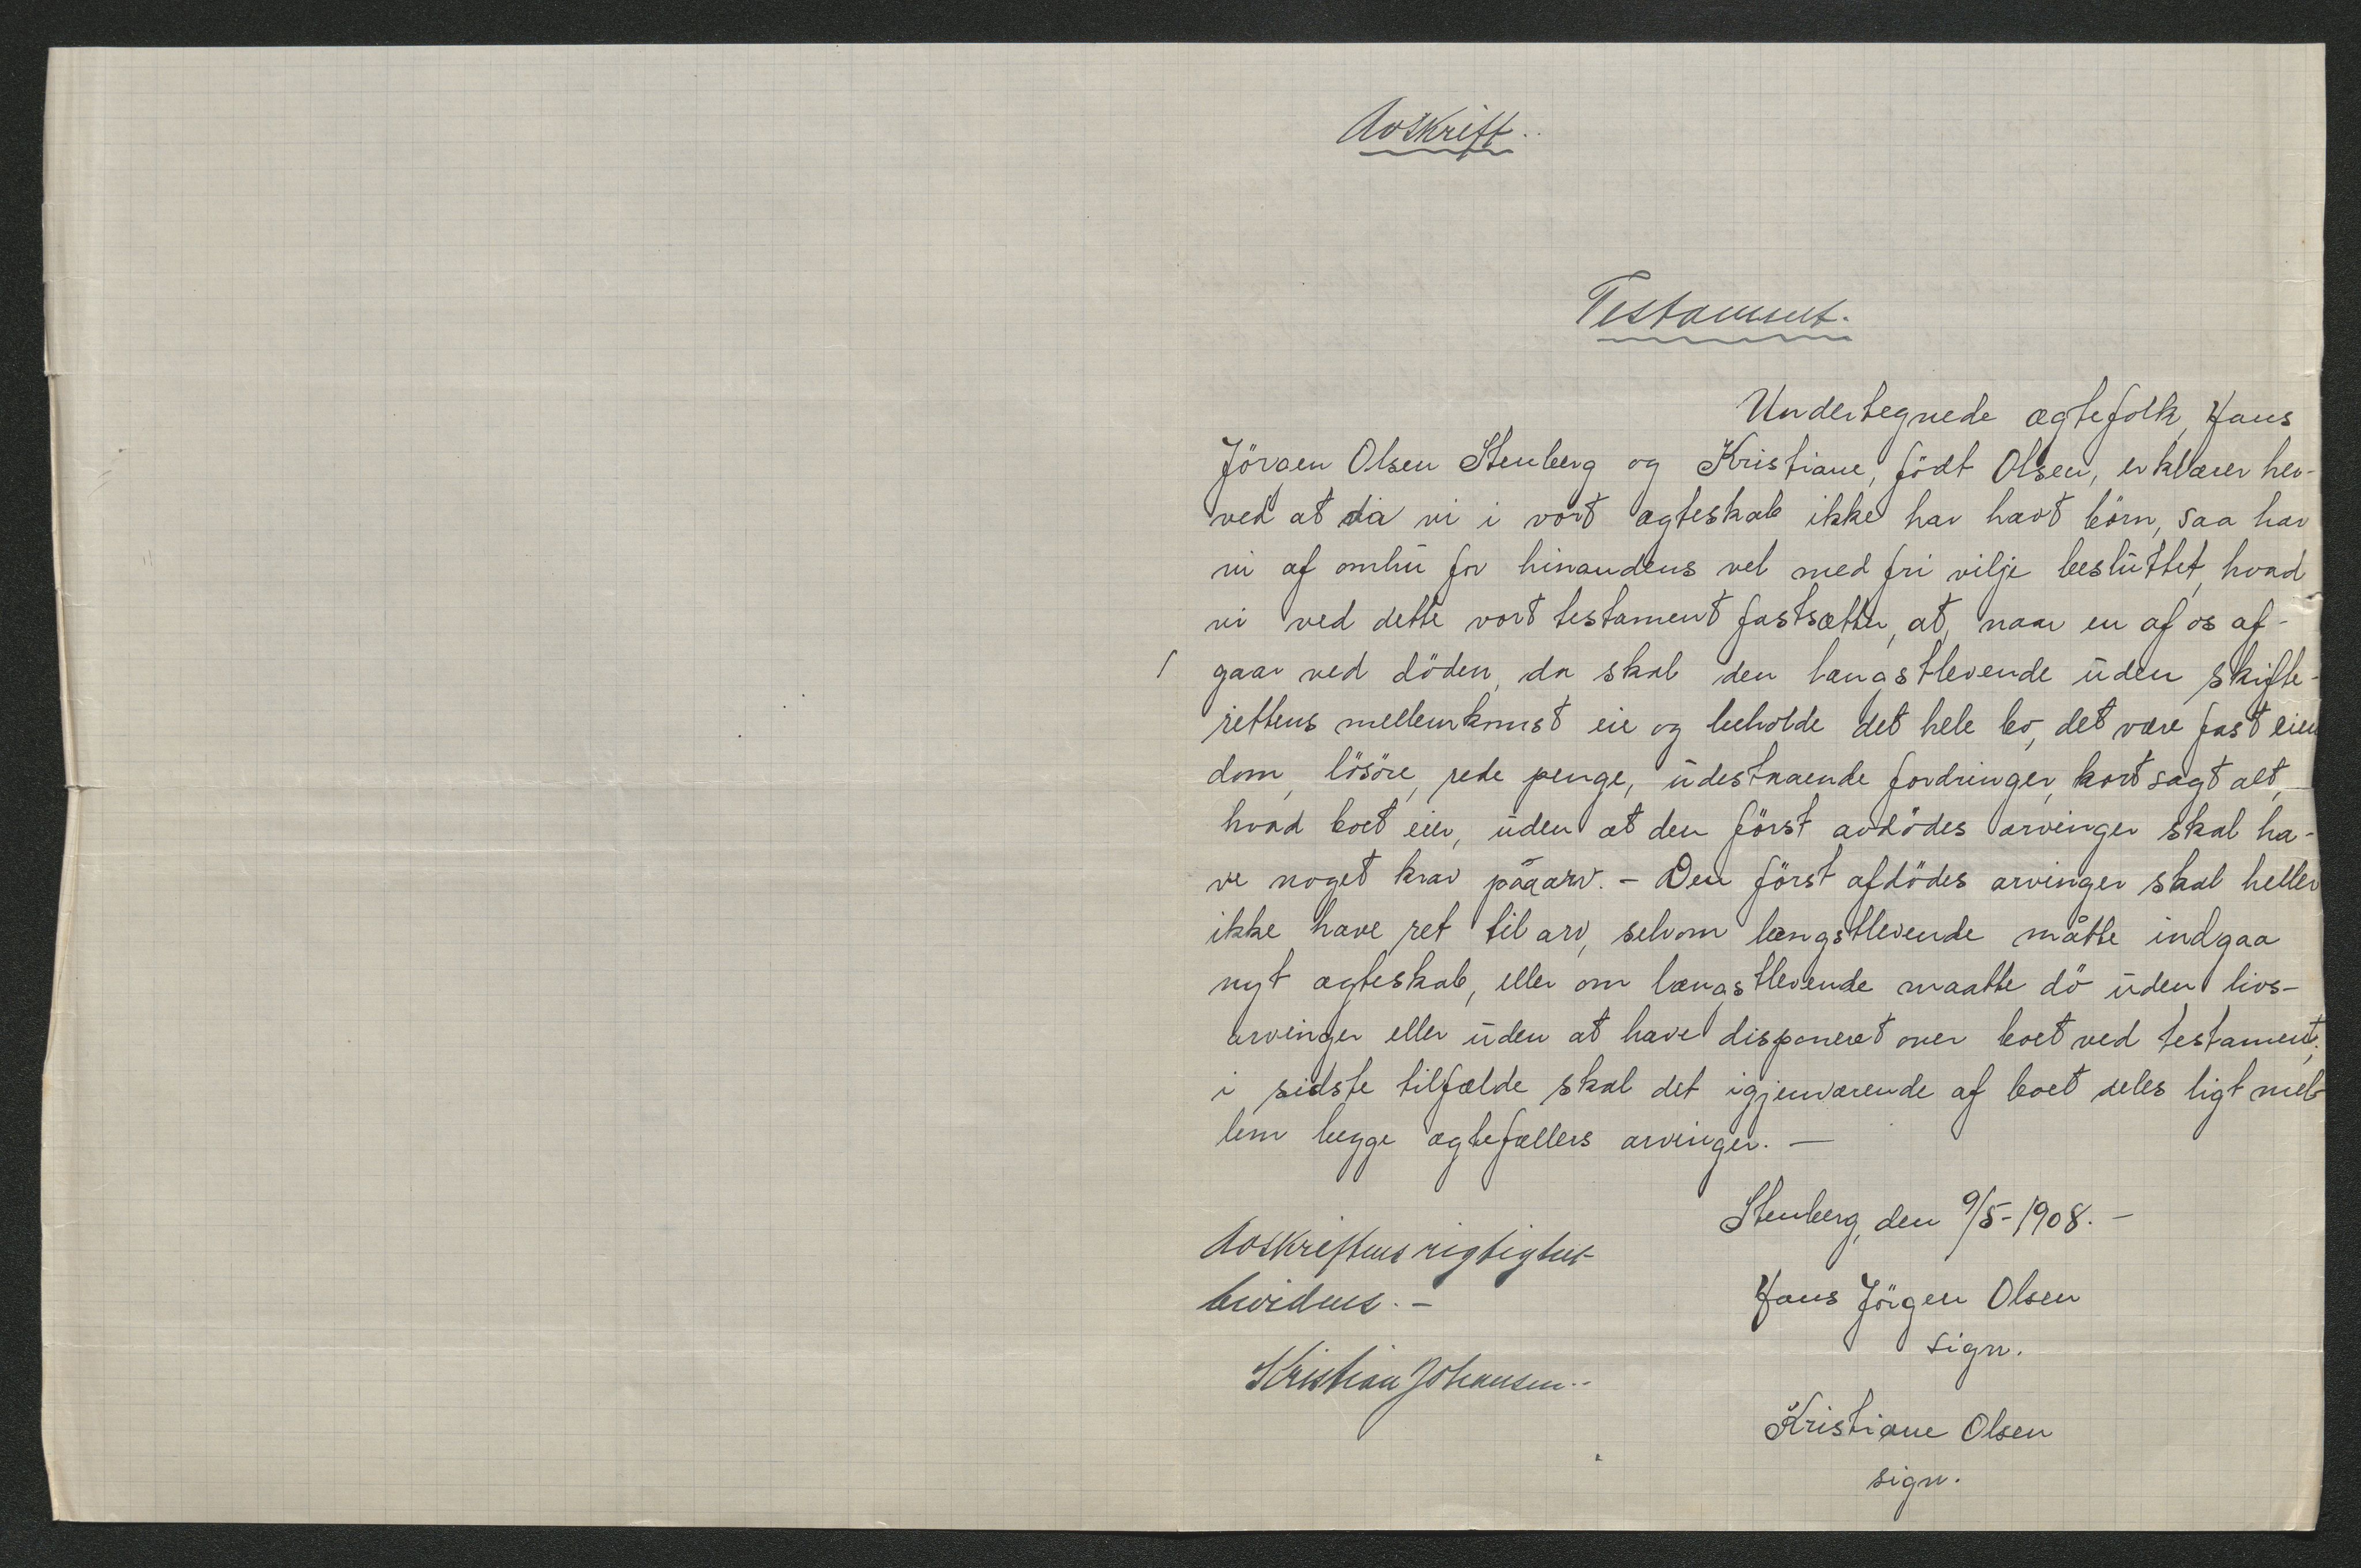 Avskrift.
Testament.
Undertegnede ægtefolk, Hans
Jörgen Olsen Stenberg og Kristiane, födt Olsen, erklærer her-
ved at da vi i vort ægteskab ikke har havt börn, saa har
vi af omhu for hinandens vel med fri vilje besluttet, hvad
vi ved dette vort testament fastsætter, at, naar en af os af-
gaar ved döden, da skal den længstlevende uden skifte-
rettens mellemkomst eie og beholde det hele bo, det være fast eien
dom, lösöre, rede penge, udestaaende fordringer, kort sagt alt,
hvad boet eier, uden at den först avdödes arvinger skal ha-
ve noget krav påaarv. - Den först afdödes arvinger skal heller
ikke have ret til arv, selvom længstlevende måtte indgaa
nyt ægteskab, eller om længstlevende maatte dö uden livs-
arvinger eller uden at have disponeret over boet ved testament;
i sidste tilfælde skal det igjenværende af boet deles ligt mel-
lem begge ægtefællers arvinger. —
Stenberg, den 9/5-1908. —
Avskriftens rigtighet
bevidnes. -
Hans Jörgen Olsen
sign.
Kristian Johansen.
Kristiane Olsen
sign.